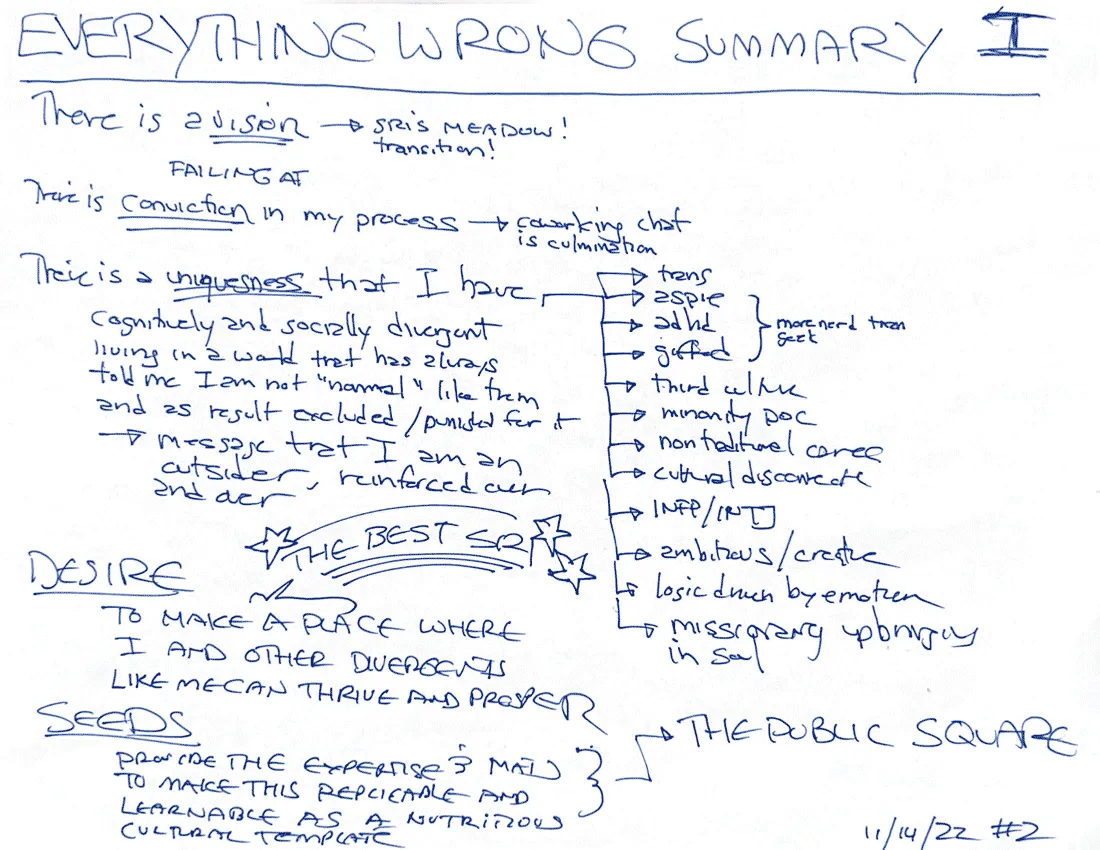 EVERYTHING WRONG SUMMARY I
There is a vision → SRI'S MEADOW!
transition!
FAILING AT
There is conviction in my process → coworking chat
is culmination
There is a uniqueness that I have
→ trans
→ aspie
→ adhd
→ gifted
more nerd than
geek
→ third culture
→ minority POC
→ nontraditional career
→ cultural disconnect
→ INFP/INTJ
→ ambitious/creative
→ logic driven by emotion
→ missionary upbringing
in
cognitively and socially divergent
living in a world that has always
told me I am not "normal" like them
and as result excluded/punished for it
→ message that I am an
outsider, reinforced over
and over
THE BEST SRI
DESIRE
TO MAKE A PLACE WHERE
I AND OTHER DIVERGENTS
LIKE ME CAN THRIVE AND PROSPER
SEEDS
PROVIDE THE EXPERTISE &
TO MAKE THIS REPLICABLE AND
LEARNABLE AS A NUTRITIOUS
CULTURAL TEMPLATE
→ THE PUBLIC SQUARE
11/14/22 #2